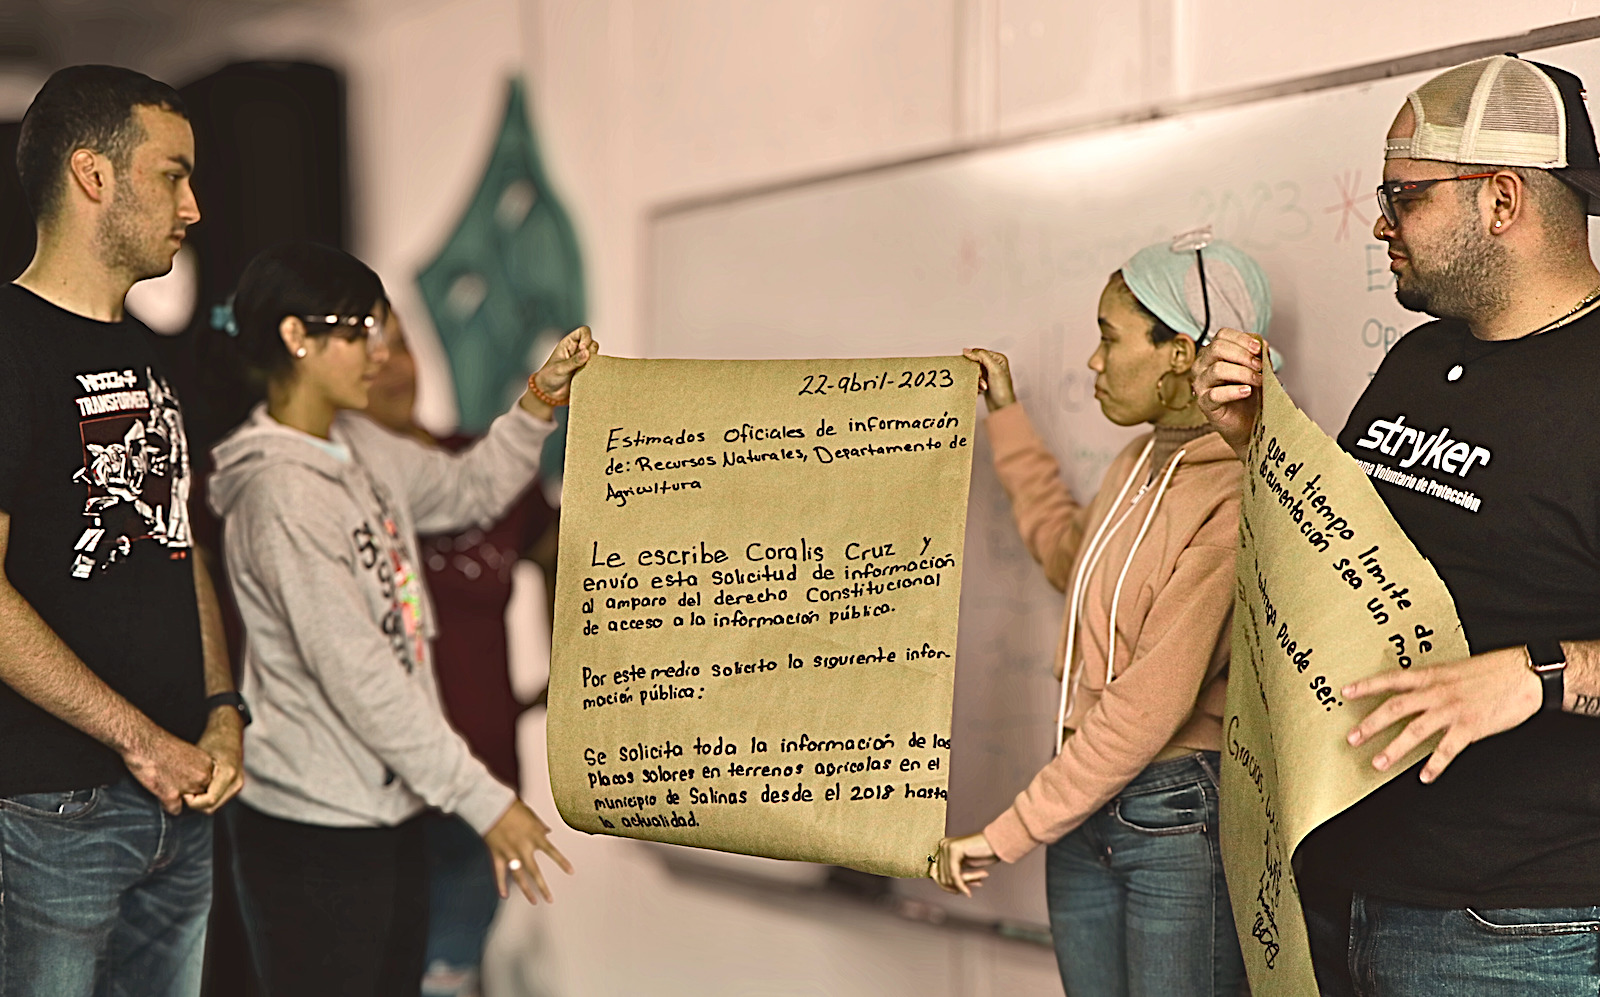 22-abril-2023
Estimados Oficiales de información
de: Recursos Naturales, Departamento de
Agricultura
Le escribe Coralis Cruz y
envío esta solicitud de información
al amparo del derecho Constitucional
de acceso a la información pública.
Por este medio solicito la siguiente infor-
mación pública:
Se solicita toda la información de las
placas solares en terrenos agrícolas en el
municipio de Salinas desde el 2018 hasta
la actualidad.
TRANSFORMERS
stryker
Voluntario de Protección
que el tiempo límite de
documentación sea un mo
puede ser:
Gracias,
2023